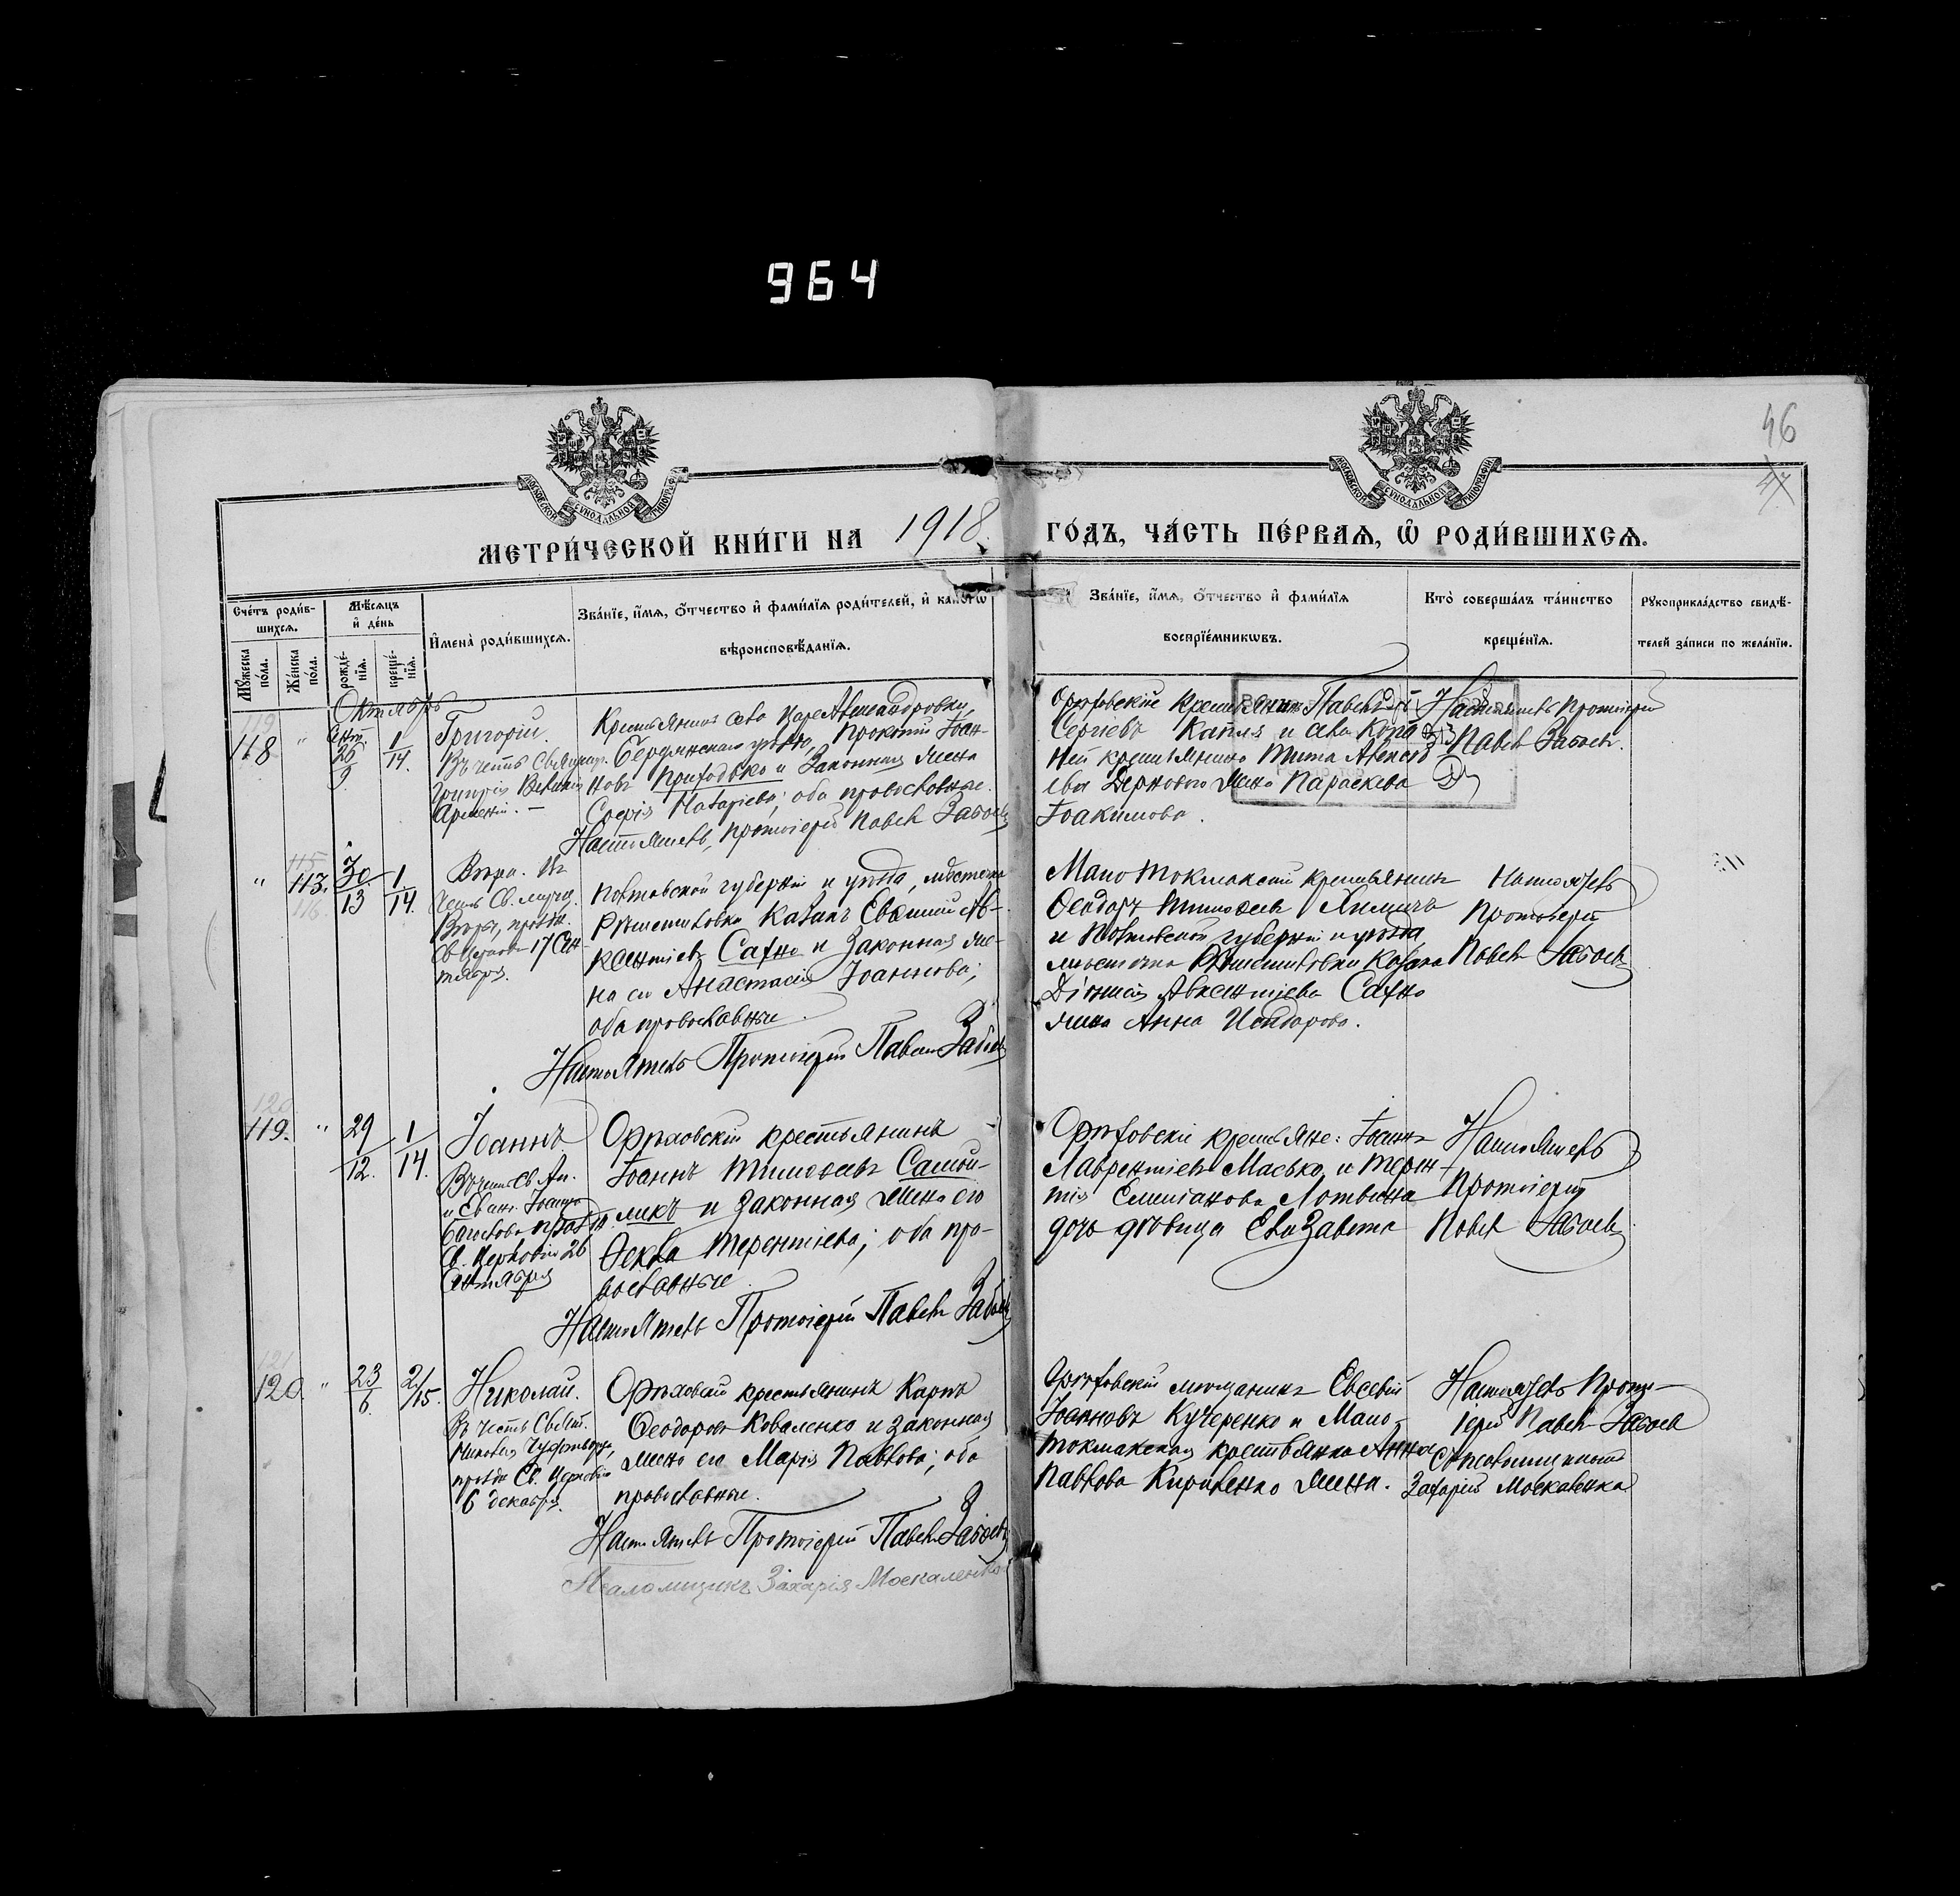 964
46
47
МОСКОВСКОЙ СѴНОДАЛЬНОЙ ТИПОГРАФІИ
МОСКОВСКОЙ СѴНОДАЛЬНОЙ ТИПОГРАФІИ
МЕТРИ́ЧЕСКОЙ КНИ́ГИ НА 1918 ГО́ДЪ, ЧА́СТЬ ПЕ́РВАѦ, Ѡ҆ РОДИ́ВШИХСѦ.
Сче́тъ роди́в-
шихсѧ.
Мꙋ́жеска по́ла.
Же́нска по́ла.
Мѣ́сѧцъ и҆ де́нь
рожде́-нїѧ.
креще́-нїѧ.
И҆мена̀ роди́вшихсѧ.
Зва́нїе, и҆́мѧ, ѻ҆́тчество и҆ фами́лїѧ роди́телей, и҆ како́гѡ
вѣроисповѣ́данїѧ.
Зва́нїе, и҆́мѧ, ѻ҆́тчество и҆ фами́лїѧ
воспрїе́мникѡвъ.
Кто̀ соверша́лъ та́инство
креще́нїѧ.
Рꙋкоприкла́дство свидѣ́-
телей за́писи по жела́нїю.
Октябрь
119
118 " Сент. 26/9 1/14.
Григорій.
Въ честь Священ.
Григорія Великія
Арменіи. —
Крестьянинъ села Цареалександровки,
Бердянскаго уѣзда, Прокопій Іоан-
новъ Приходько и законная жена
Софія Назаріева; оба православные.
Настоятель, Протоіерей Павелъ Забоев
Орѣховскій крестьянинъ Павелъ
Сергіевъ Капля и села Копа
ней крестьянина Тита Алексѣ
ева Дерноваго жена Параскева
Іоакимова.
Настоятель Протоіерей
Павелъ Забоев.
115
" 113. 30/13 1/14.
116
Вѣра. Въ
честь Св. мучен.
Вѣры, празд.
Св. Церков. 17 Сен-
тября.
Полтавской губерніи и уѣзда, мѣстечка
Рѣшетиловки казакъ Евфимій Ав-
ксентіевъ Сахно и законная же-
на его Анастасія Іоаннова;
оба православные.
Настоятель Протоіерей Павелъ Забоев
Мало Токмакскій крестьянинъ
Ѳеодоръ Тимоѳеевъ
и Полтавской губерніи и уѣзда
мѣстечка Рѣшетиловки казака
Діонисія Авксентіева Сахно
жена Анна Исидорова.
Настоятель
Протоіерей
Павелъ Забоев
120
119. " 29/12. 1/14.
Іоаннъ
Въ честь Св. Ап.
и Еванг. Іоанна
Богослова празд.
Св. Церковію 26
Сентября
Орѣховскій крестьянинъ
Іоаннъ Тимоѳеевъ Самой-
ликъ и законная жена его
Ѳекла Терентіева; оба пра-
вославные.
Настоятель Протоіерей Павелъ Забоев
Орѣховскіе крестьяне: Іоаннъ
Лаврентіевъ Масько и Терен-
тія Семианова Лотвина
дочь дѣвица Елизавета
Настоятель
Протоіерей
Павелъ Забоев
121
120. " 23/6. 2/15.
Николай.
Въ честь Святит.
Николая Чудотворца,
празд. Св. Церковію
6 декабря.
Орѣховскій крестьянинъ Карпъ
Ѳеодоровъ Коваленко и законная
жена его Марія Павлова; оба
православные.
Настоятель Протоіерей Павелъ Забоев
Псаломщикъ Захарія Москаленко
Орѣховскій мѣщанинъ Евсевій
Іоанновъ Кучеренко и Мало-
токмакская крестьянка Анна
Павлова Кириленко жена.
Настоятель Прото-
іерей Павелъ Забоев
Псаломщикъ
Захарій Москаленко